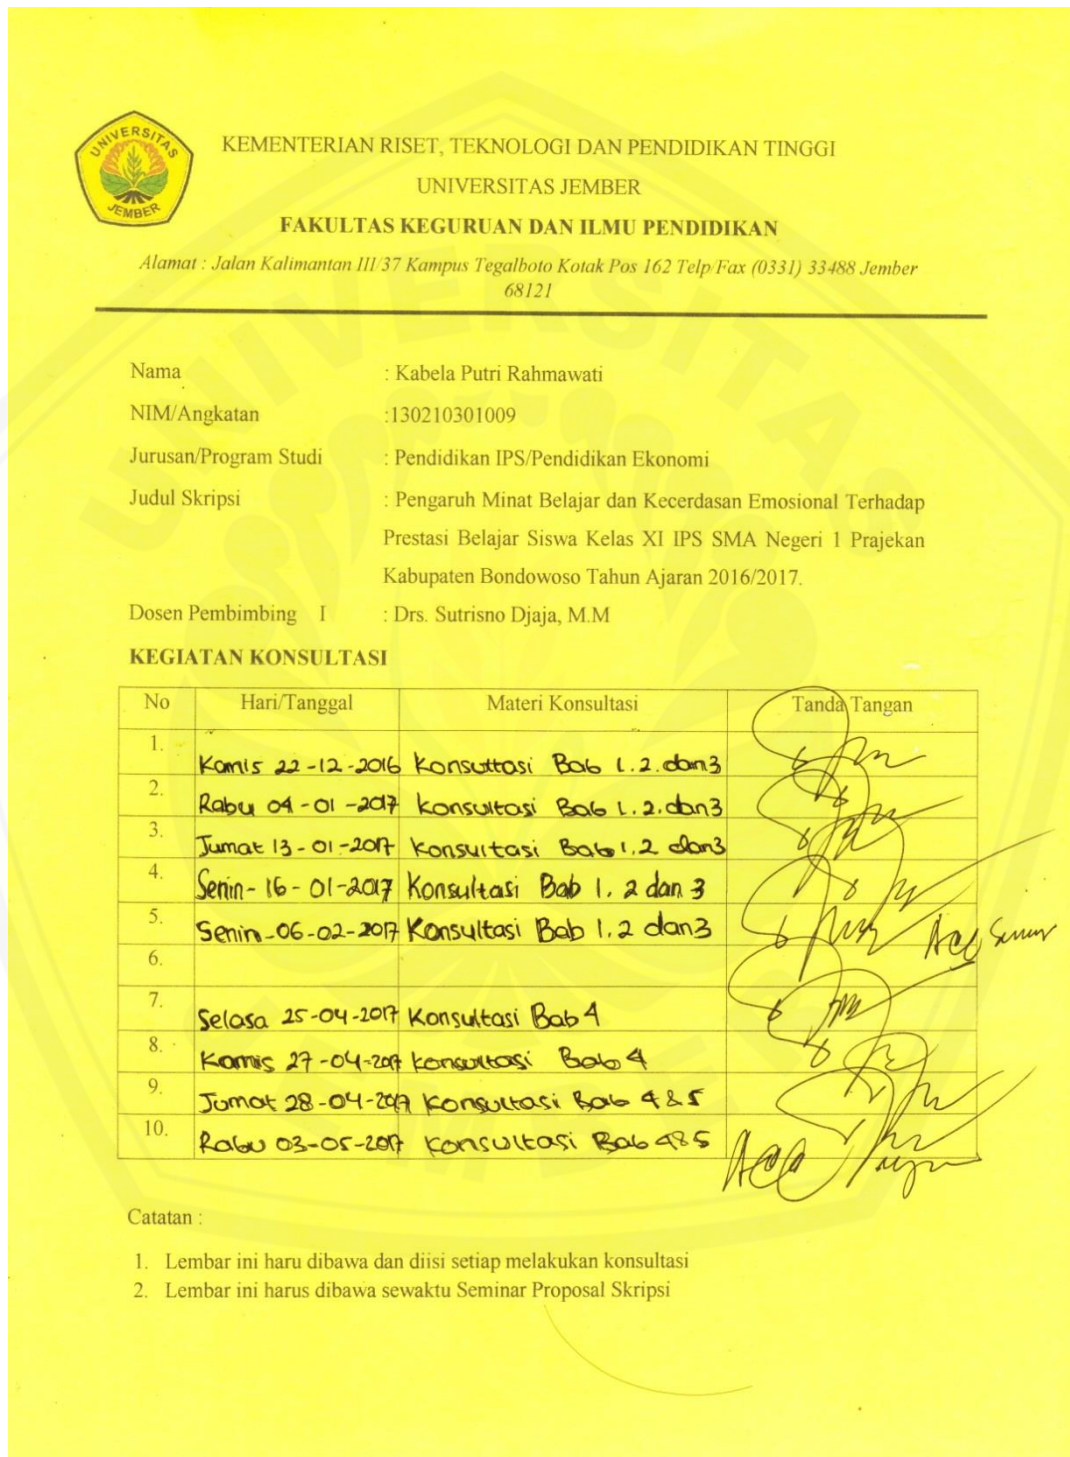 UNIVERSITAS
JEMBER
KEMENTERIAN RISET, TEKNOLOGI DAN PENDIDIKAN TINGGI
UNIVERSITAS JEMBER
FAKULTAS KEGURUAN DAN ILMU PENDIDIKAN
Alamat : Jalan Kalimantan III/37 Kampus Tegalboto Kotak Pos 162 Telp/Fax (0331) 33488 Jember
68121
Nama : Kabela Putri Rahmawati
NIM/Angkatan :130210301009
Jurusan/Program Studi : Pendidikan IPS/Pendidikan Ekonomi
Judul Skripsi : Pengaruh Minat Belajar dan Kecerdasan Emosional Terhadap
Prestasi Belajar Siswa Kelas XI IPS SMA Negeri 1 Prajekan
Kabupaten Bondowoso Tahun Ajaran 2016/2017.
Dosen Pembimbing I : Drs. Sutrisno Djaja, M.M
KEGIATAN KONSULTASI
No Hari/Tanggal Materi Konsultasi Tanda Tangan
1. Kamis 22-12-2016 Konsultasi Bab 1.2.dan3
2. Rabu 04-01-2017 Konsultasi Bab 1.2.dan3
3. Jumat 13-01-2017 Konsultasi Bab 1.2 dan3
4. Senin-16-01-2017 Konsultasi Bab 1.2 dan 3
5. Senin-06-02-2017 Konsultasi Bab 1.2 dan3 Acc
6.
7. Selasa 25-04-2017 Konsultasi Bab 4
8. Kamis 27-04-2017 Konsultasi Bab 4
9. Jumat 28-04-2017 Konsultasi Bab 4&5
10. Rabu 03-05-2017 Konsultasi Bab 4&5 Acc
Catatan :
1. Lembar ini haru dibawa dan diisi setiap melakukan konsultasi
2. Lembar ini harus dibawa sewaktu Seminar Proposal Skripsi